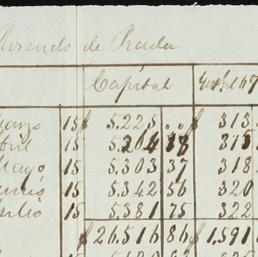 Rosendo de Prada
Capital
arzo 15 $ 5.225 .. $ 313
bril 15 5.264 18 315
Mayo 15 5.303 37 318
unio 15 5.342 56 320
ulio 15 5.381 75 322
$ 26,516 86 $ 1,591